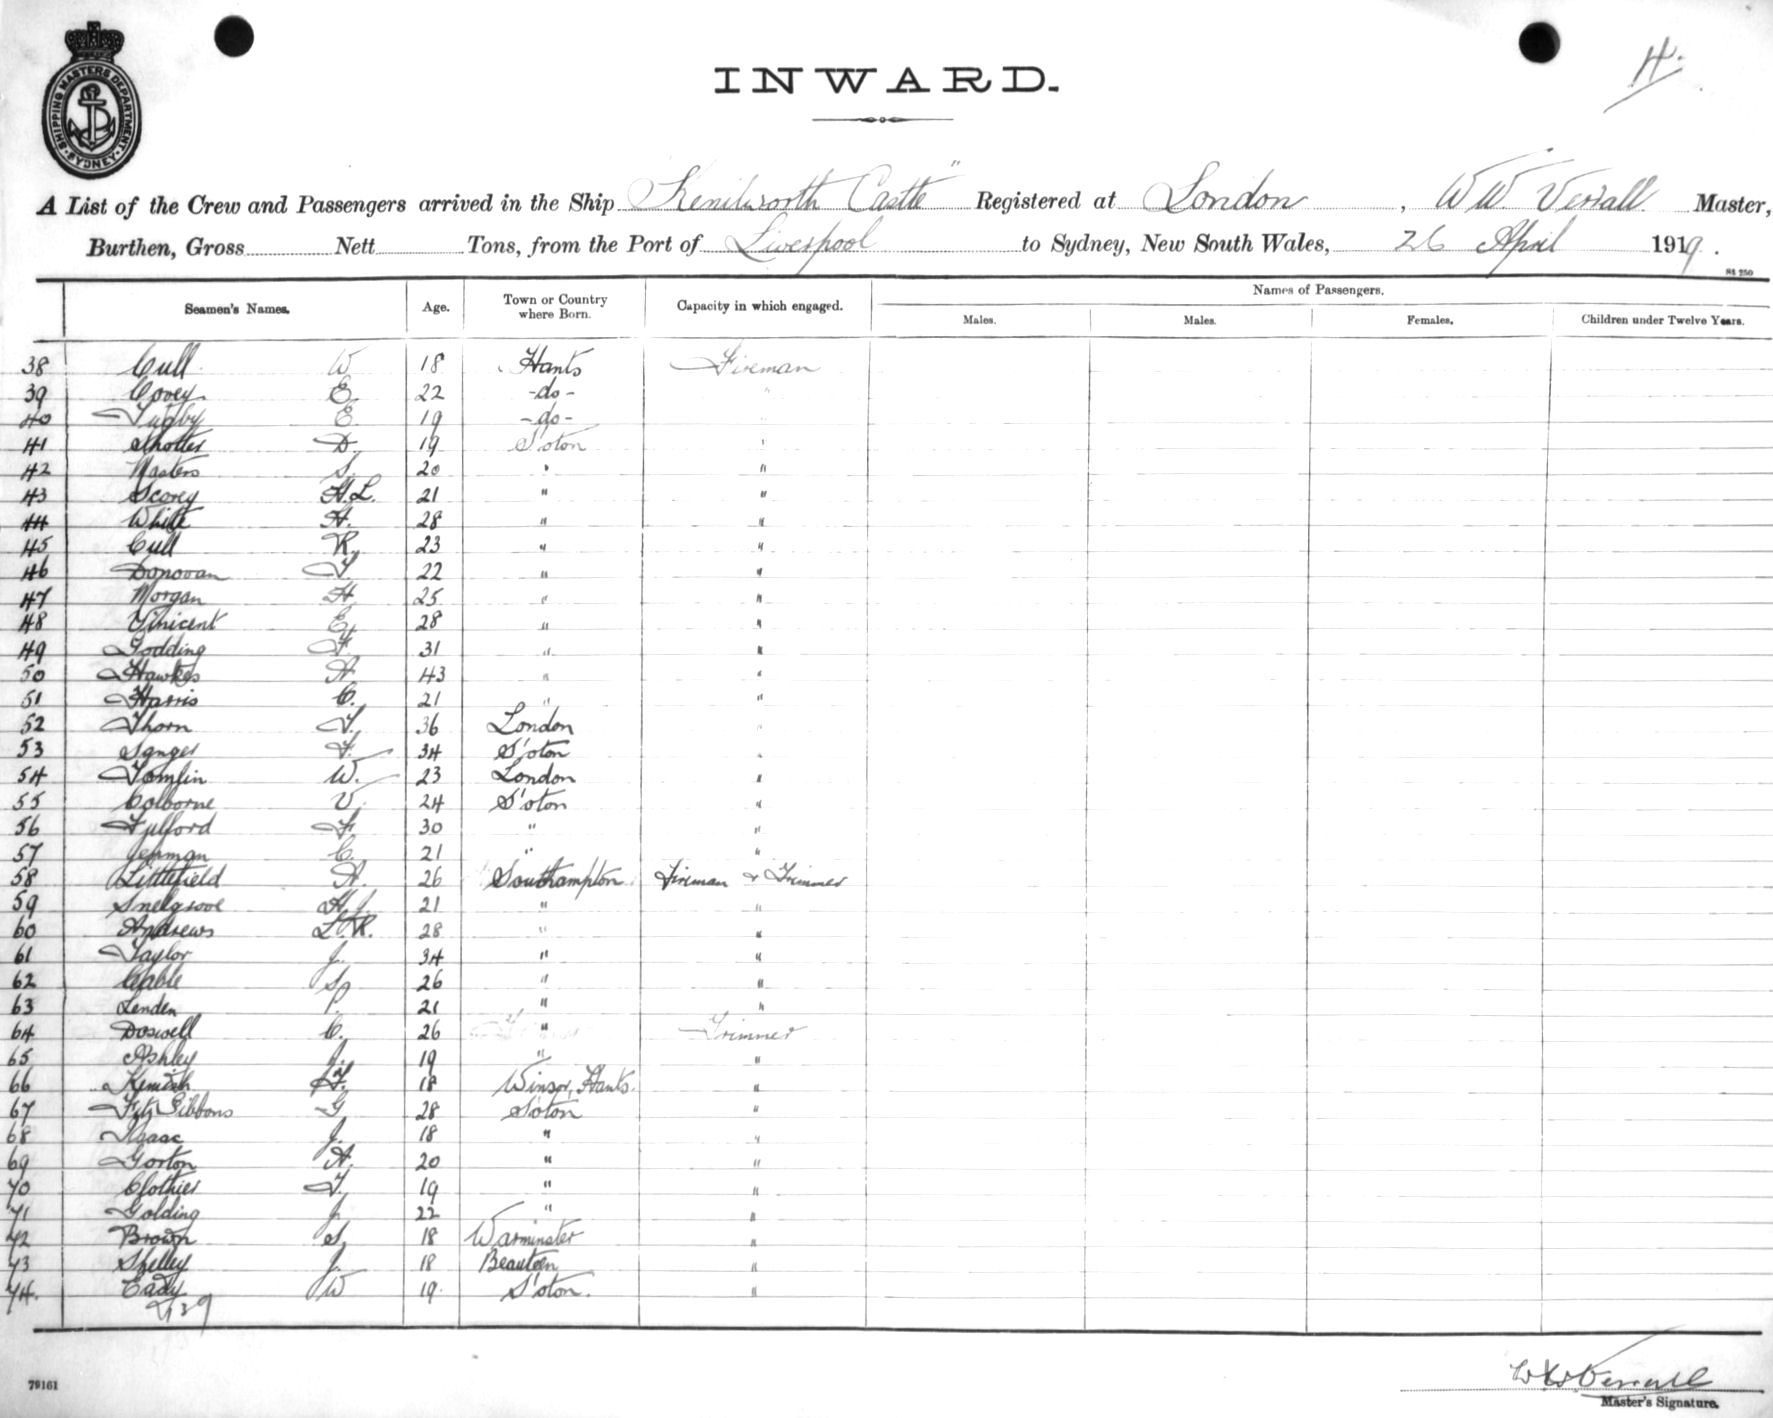 4.
SHIPPING MASTERS DEPARTMENT
SYDNEY
INWARD.
A List of the Crew and Passengers arrived in the Ship Kenilworth Castle" Registered at London, W W. Verrall Master,
Burthen, Gross Nett Tons, from the Port of Liverpool to Sydney, New South Wales, 26 April 1919.
Seamen's Names. Age. Town or Country where Born. Capacity in which engaged. Names of Passengers.
Males. Males. Females. Children under Twelve Years.
38 Cull W 18 Hants Fireman
39 Covey E. 22 -do- "
40 Tugby E 19 -do-
41 Shotter D. 19 S'oton "
42 Masters S. 20 " "
43 Scorey H.L. 21 " "
44 White H. 28 " "
45 Cull R. 23 " "
46 Donovan T. 22 " "
47 Morgan H 25 " "
48 Vinicent E, 28 " "
49 Godding F. 31 " "
50 Hawkes A. 43 " "
51 Harris C. 21 " "
52 Thorn T. 36 London "
53 Sanger F. 34 S'oton "
54 Tomlin W. 23 London "
55 Colborne V. 24 S'oton "
56 Fulford F. 30 " "
57 C. 21 " "
58 Littlefield A. 26 Southampton Fireman & Trimmer
59 Snelgrove H.J. 21 " "
60 Andrews L.R. 28 " "
61 Taylor J. 34 " "
62 Cable 26 " "
63 Lenden P. 21 " "
64 Doswell C. 26 " Trimmer
65 Ashley J. 19 " "
66 Kemish 18 Winsor, Hants. "
67 FitzGibbons G 28 S'oton "
68 Isaac J. 18 " "
69 Gorton A. 20 " "
70 Clothier T. 19 " "
71 Golding J. 22 " "
72 Brown S. 18 Warminster "
73 Shelley J. 18 "
74. Eady W 19. S'oton. "
79161
W W Verrall
Master's Signature.